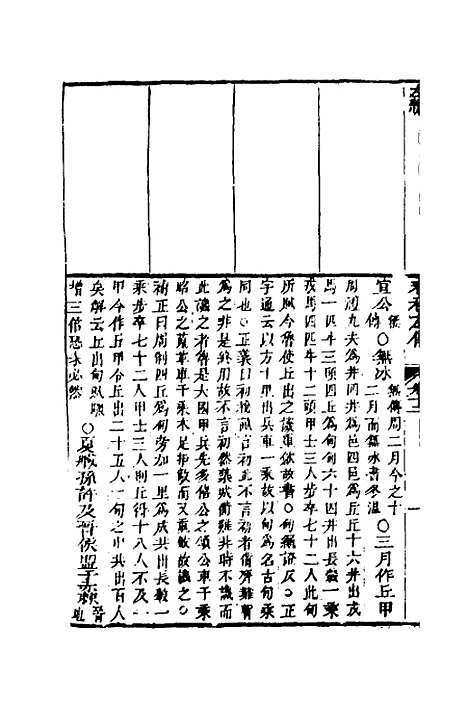 左繡
春秋左傳 卷十二 一
宣公 無傳 ○無冰 無傳周二月今之十
二月而無冰書冬溫 ○三月作丘甲
周禮九夫為井四井為邑四邑為丘丘十六井出戎
馬一匹牛三頭四丘為甸甸六十四井出長轂一乘
戎馬四匹牛十二頭甲士三人步卒七十二人此甸
所賦今魯使丘出之譏重斂故書○甸繩證反○正
字通云以方十里出兵車一乘故以甸為名古甸乘
同也○正義曰初稅畝言初此不言初者備齊難暫
為之非是終用故不言初然築城備難非時不譏而
此譏之者魯是大國甲兵先多僖公之頌公車千乘
昭公之蒐革車千乘足拒敵而又重斂故譏之○
補正曰周制四丘為甸旁加一里為成共出長轂一
乘步卒七十二人甲士三人則丘得十八人不及一
甲今作丘甲令丘出二十五人一甸之中共出百人
矣解云丘出甸賦驟
增三倍恐未必然 ○夏臧孫許及晉侯盟于赤棘 晉地